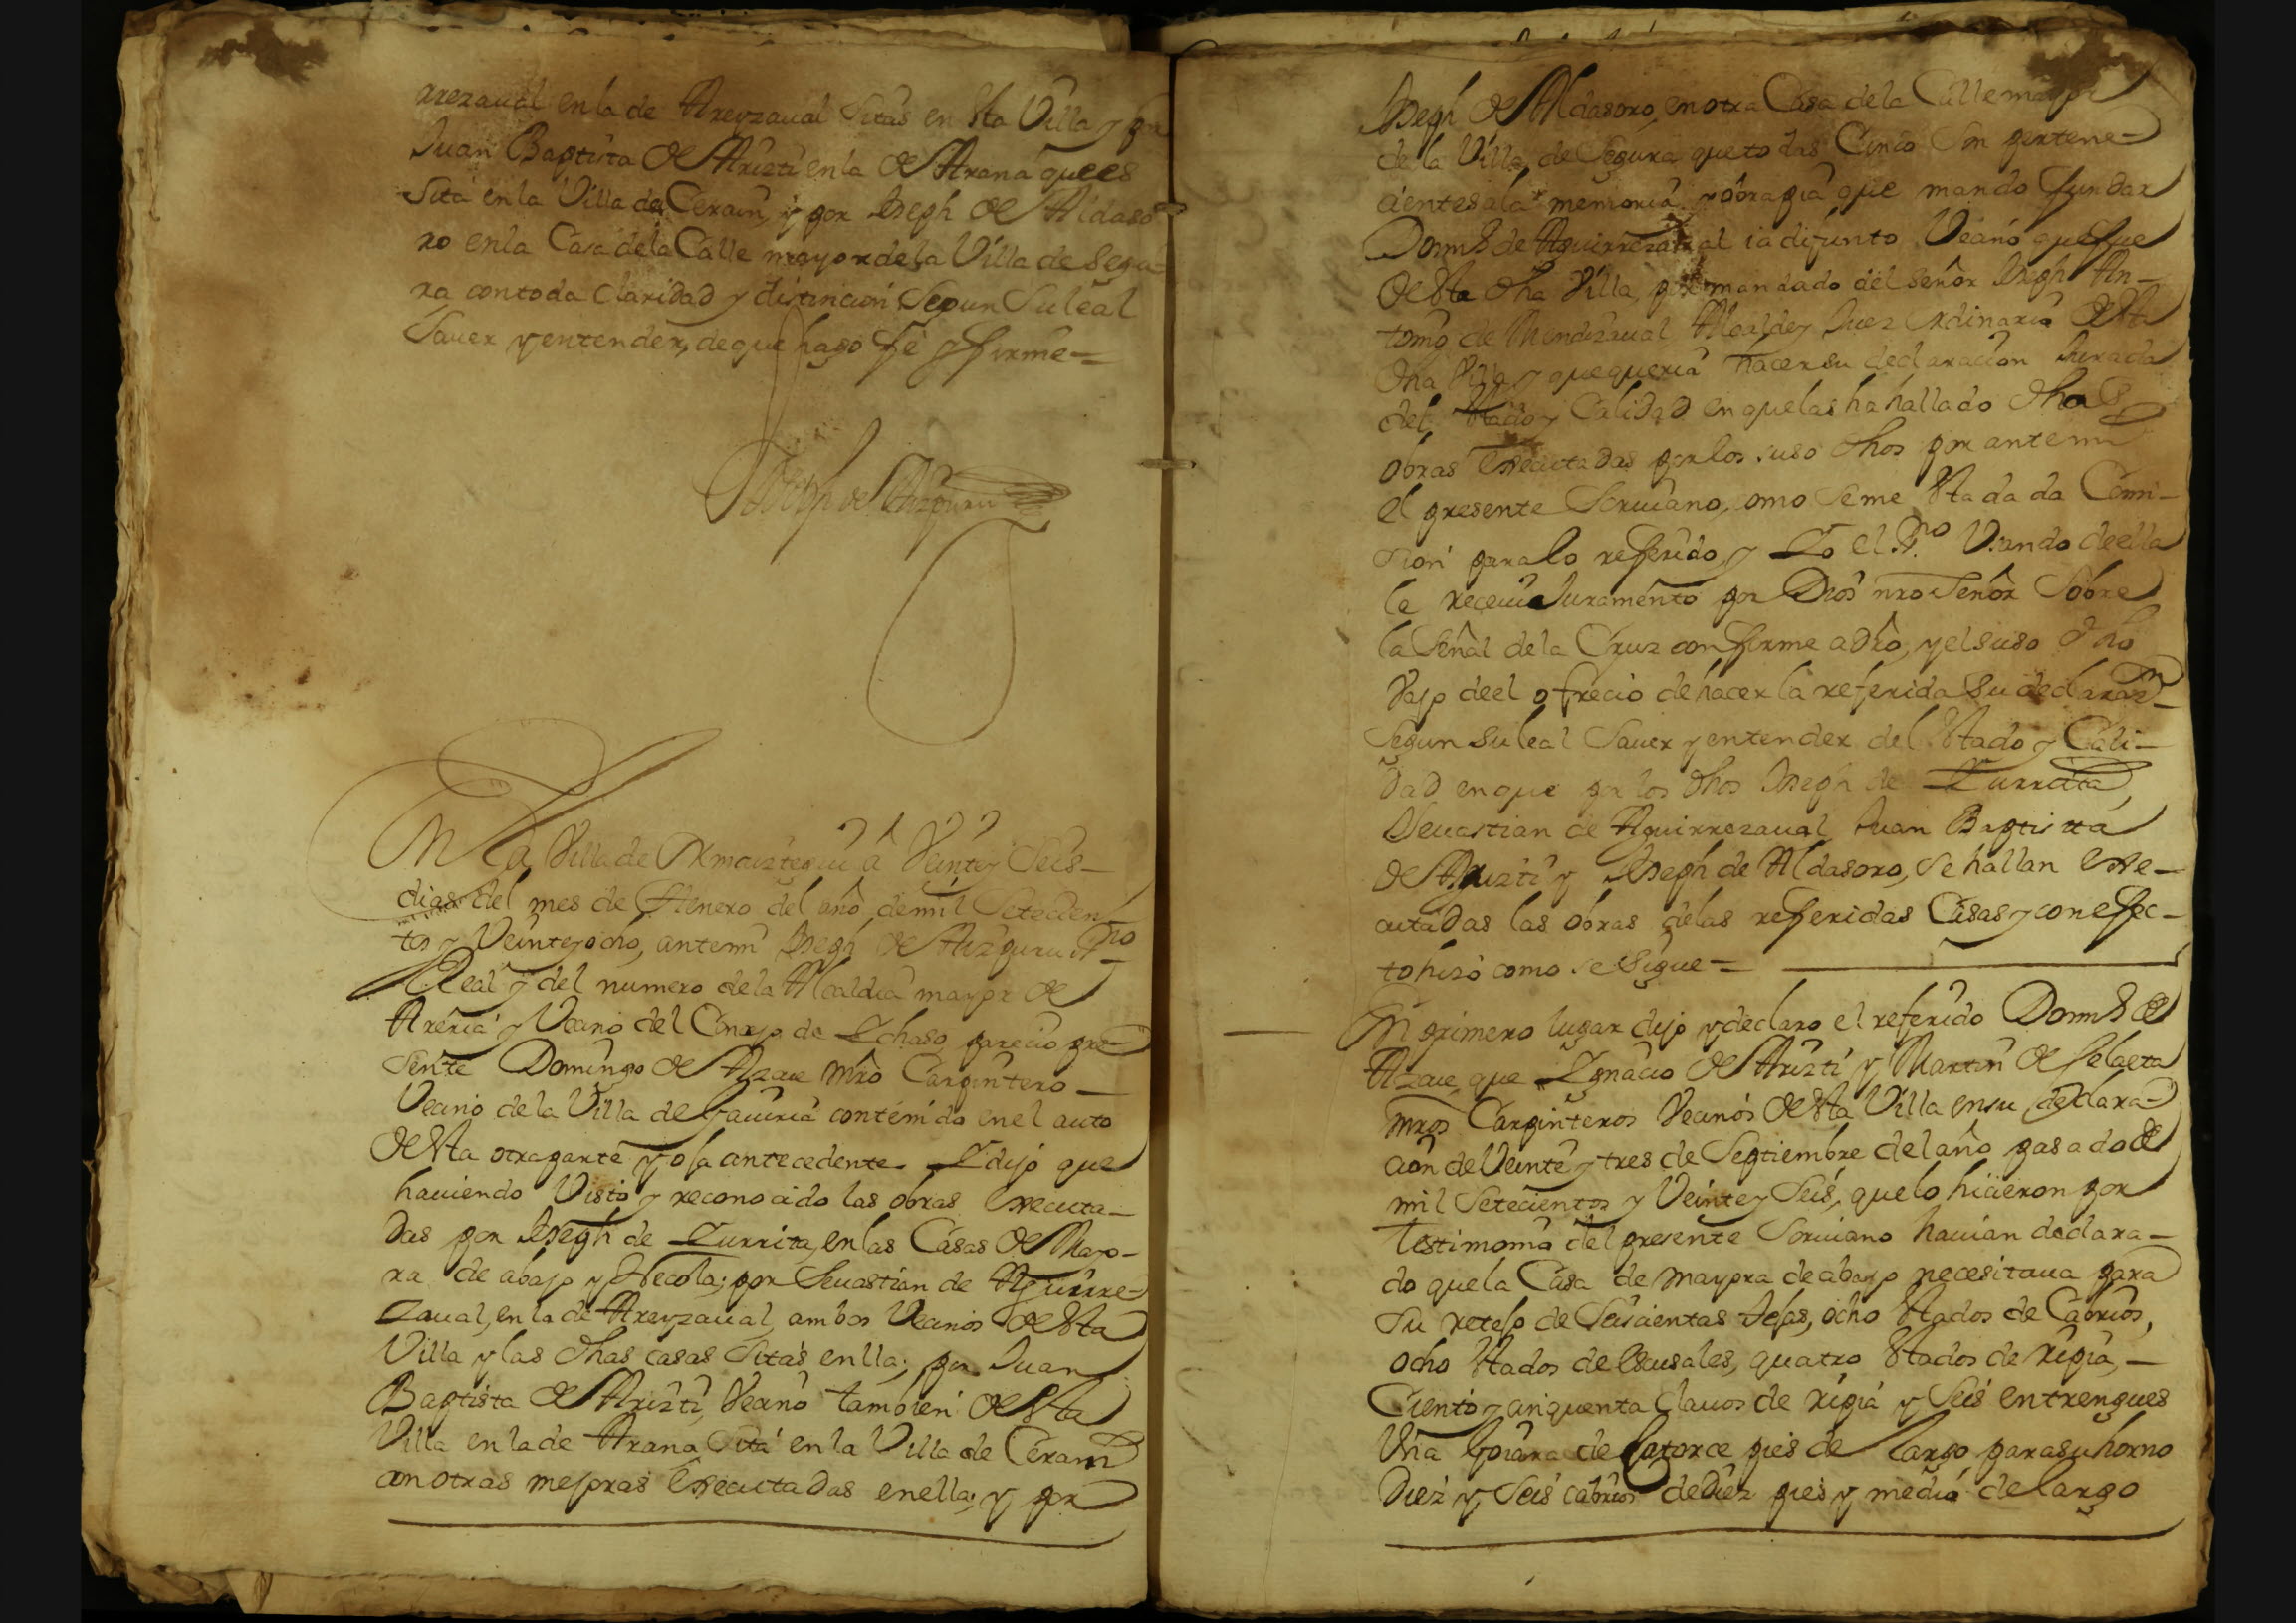 rrezaual en la de Areyzaual Sitas en Sta Villa y por
Juan Baptista de Arizti en la de Arana que es
Sita en la Villa de Cerain, y por Joseph de Aldaso
ro en la Casa de la Calle mayor de la Villa de Segu-
ra con toda Claridad y distincion Segun Su leal
Sauer y entender, de que hago fe y firme =
Joseph de Aizpuru
En la Villa de Ormaiztegui â Veinte y Seis
dias del mes de Henero del año de mil Setecien
tos y Veinte y ocho, ante mi Joseph de Aizpuru Sno
Real y del numero de la Alcaldia mayor de
Areria y Vecino del Concejo de Ychaso parecio pre-
sente Domingo de Alzue mro Carpintero
Vecino de la Villa de Gauiria contenido en el auto
de Sta otra parte y oja antecedente Y dijo que
hauiendo Visto y reconocido las obras Executa-
das por Joseph de Yurrita, en las Casas de Mayo-
ra de abajo y por Seuastian de Aguirre-
zaual, en la de Areyzaual, ambos Vecinos de Sta
Villa y las dhas casas Sitas en lla; por Juan
Baptista de Arizti, Vecino tambien de Sta
Villa en la de Arana Sita en la Villa de Cerain
con otras mejoras Executadas en ella; y por
Joseph de Aldasoro, en otra Casa de la Calle mayor
de la Villa de Segura que todas Cinco Son pertene-
cientes a la memoria y obra pia que mando fundar
Domingo de Aguirrezaual ia difunto Vecino que fue
de Sta dha Villa, por mandado del Señor Joseph An-
tonio de Mendizaual Alcalde y Juez Ordinario de Sta
dha Villa y que queria hacer su declaracion Jurada
del Stado y Calidad en que las ha hallado dhas
obras Executadas por los suso dhos por ante mi
el presente Scriuano, como se me Sta dada Comi-
sion para lo referido, y Yo el Sno Vsando de ella
le receui Juramento por Dios nro Señor Sobre
la Señal de la Cruz conforme a dro, y el suso dho
Vajo de el ofrecio de hacer la referida Su declaraon
Segun Su leal Sauer y entender del Stado y Cali-
dad en que por los dhos Joseph de Yurrita,
Seuastian de Aguirrezaual Juan Baptista
de Arizti y Joseph de Aldasoro, Se hallan Exe-
cutadas las obras de las referidas Casas y con efec-
to hizo como se Sigue =
En primero lugar dijo y declaro el referido Domingo de
Alzue que Ygnacio de Arizti y Martin de Telaeta
mros Carpinteros Vecinos de Sta Villa en su declara-
cion de Veinte y tres de Septiembre del año pasado de
mil Setecientos y Veinte y Seis, que lo hicieron por
Testimonio del presente Scriuano hauian declara-
do que la Casa de mayora de abajo necesitaua para
Su retejo de Seiscientas tejas, ocho Stados de Cabrios,
ocho Stados de quatro Stados de ripia,
Ciento y cinquenta Clauos de ripia y Seis entrengues
Vna de Catorce pies de Largo para su horno
Diez y Seis cabrios de Diez pies y medio de largo